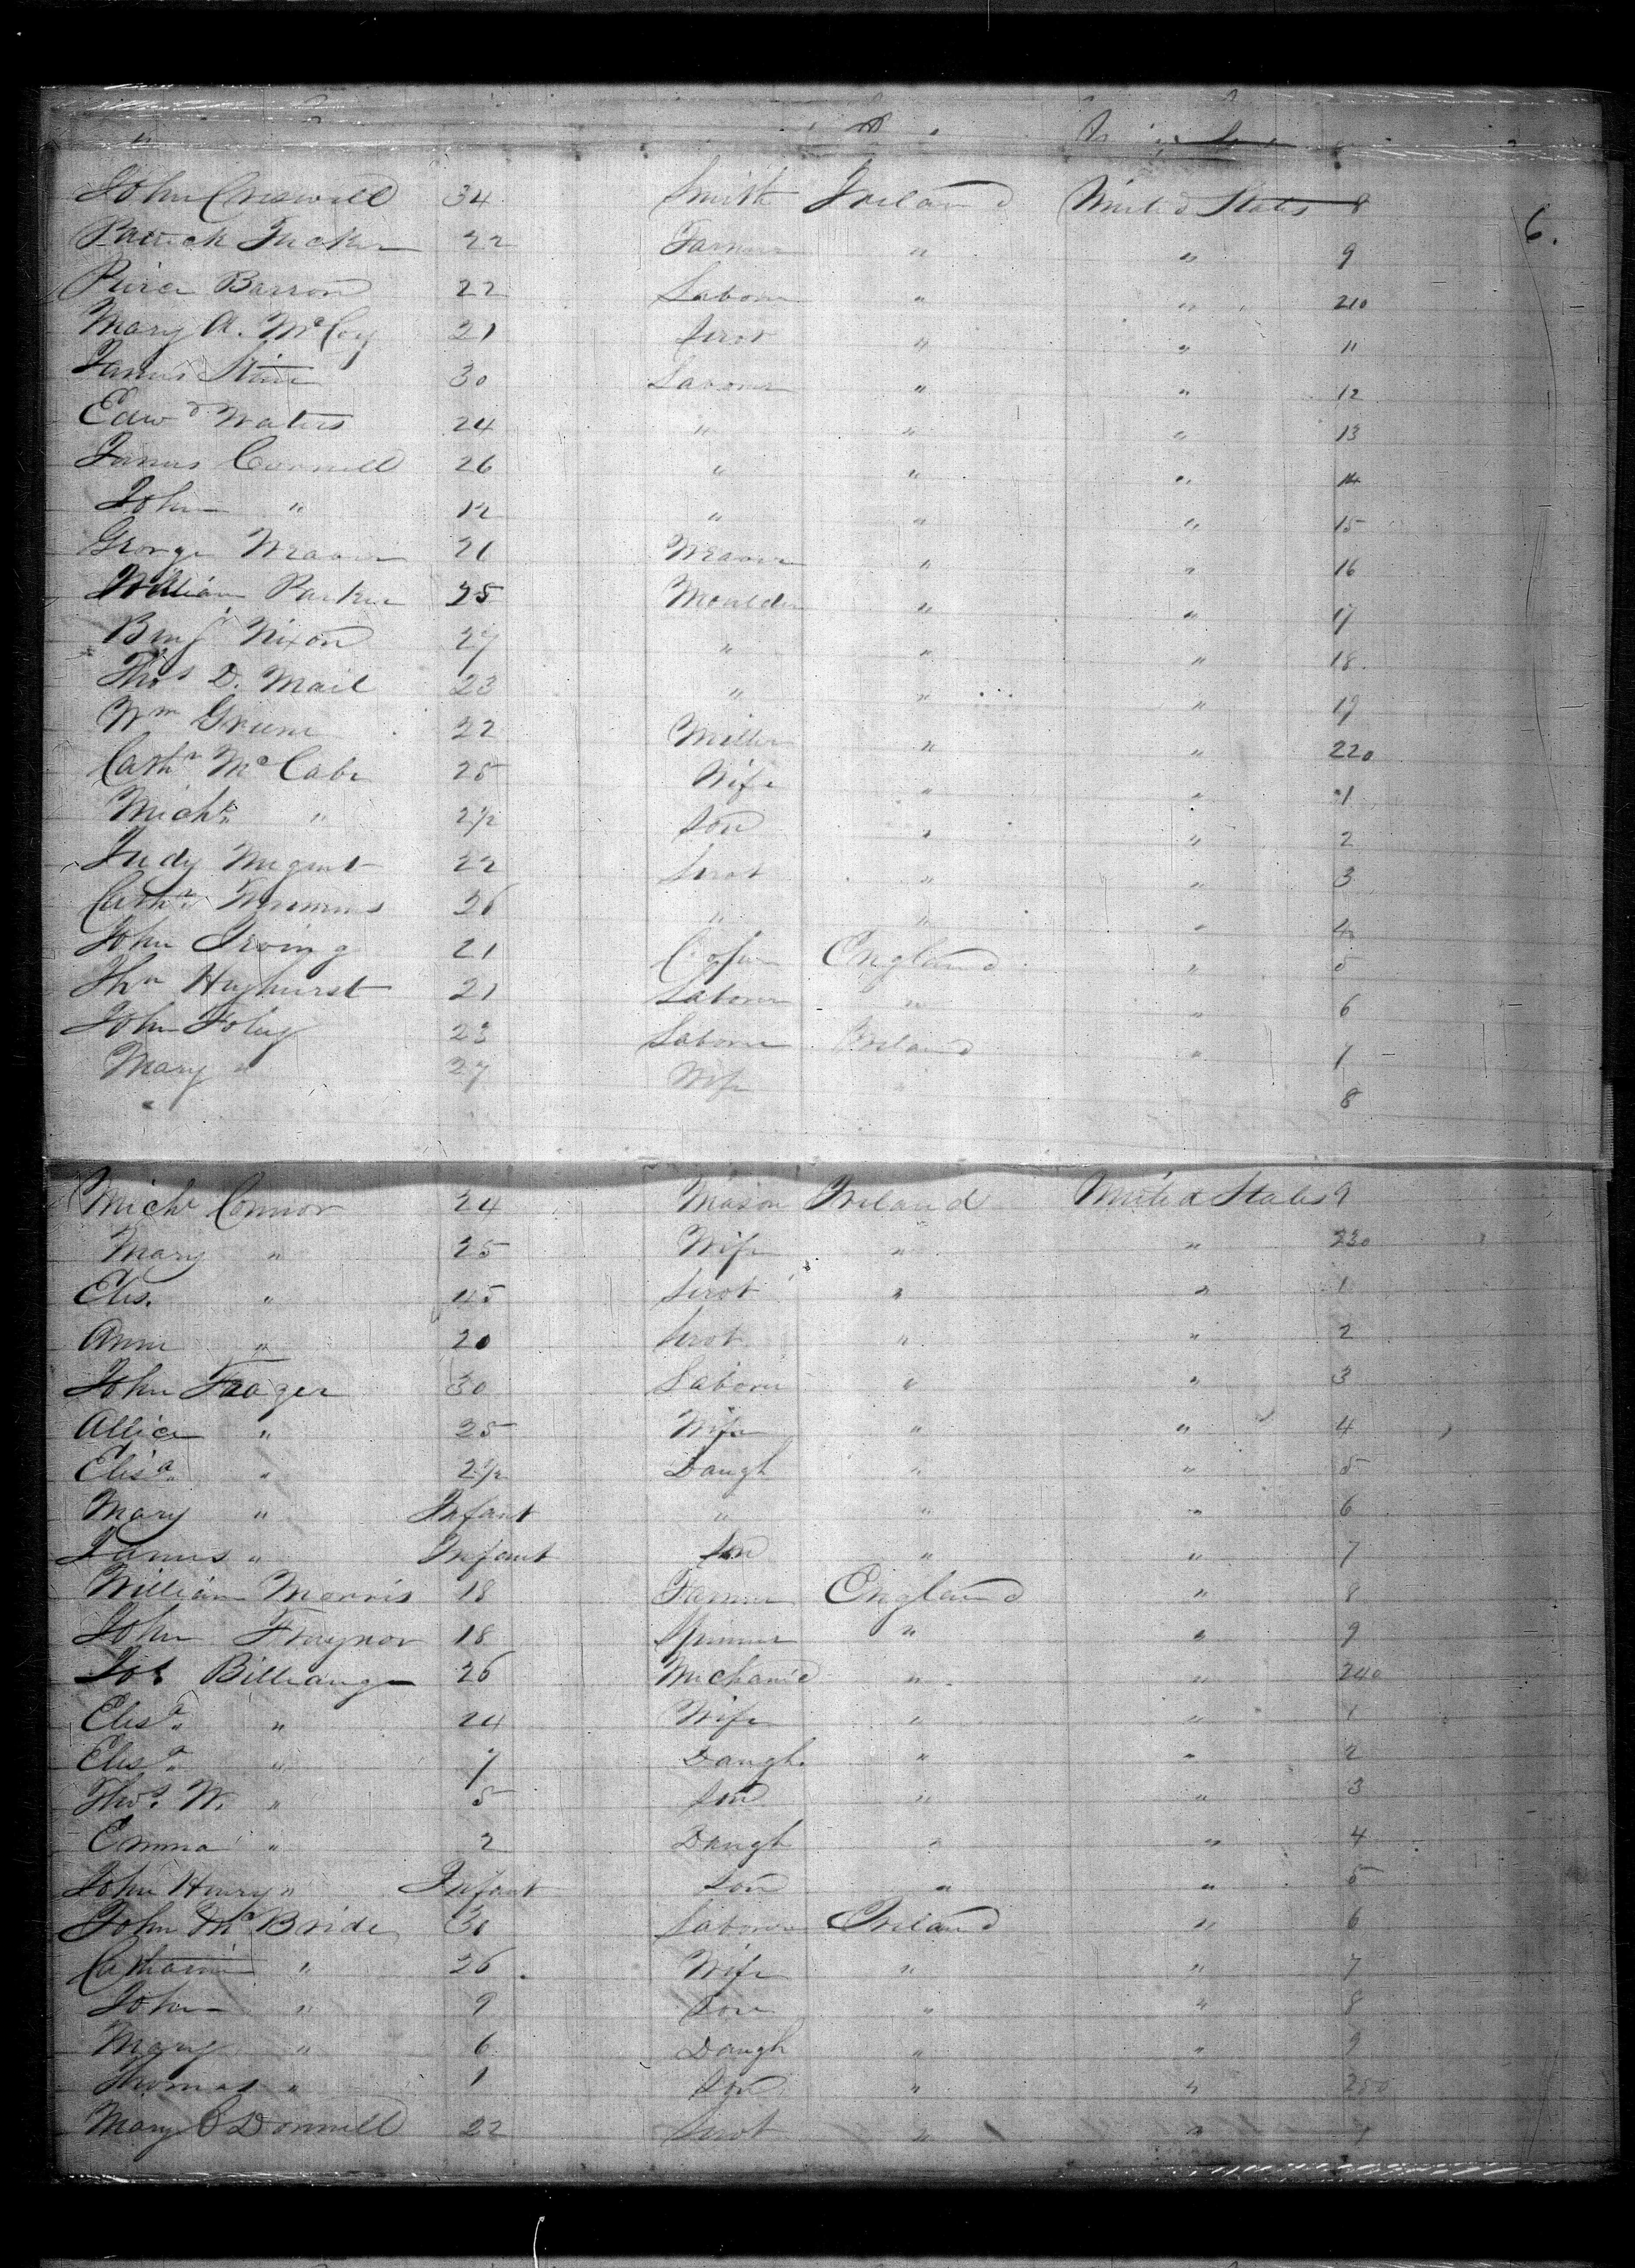 John Criswell 34 Smith Ireland United States 8
6.
Patrick Tucker 22 Farmer " " 9
Pierce Barron 22 Laborer " " 210
Mary A. McCoy 21 Servt " " 11
James 30 Laborer " " 12
Edwd Waters 24 " " " 13
James Connell 26 " " " 14
John " 12 " " " 15
George Weaver 21 Weaver " " 16
William Parker 25 Moulder " " 17
Benj Nixon 27 " " " 18
Thos D. Mail 23 " " " 19
Wm Greene 22 Miller " " 220
Cathn McCabe 25 Wife " " 1
Michl " 2½ Son " " 2
Judy Nugent 22 Servt " " 3
Cathn 26 " " " 4
John Irving 21 England " 5
Hayhurst 21 Laborer " " 6
John Foley 23 Laborer Ireland " 7
Mary " 27 Wife " 8
Michl Connor 24 Mason Ireland United States 9
Mary " 25 Wife " " 230
Elis. " 45 Servt " " 1
Anne " 20 Servt " " 2
John Frager 30 Laborer " " 3
Allice " 25 Wife " " 4
Elisa " 2½ Daugh " " 5
Mary " Infant " " " 6
James " Infant Son " " 7
William Morris 18 Farmer England " 8
John Traynor 18 Spinner " " 9
Jos Billange 26 Mechanic " " 240
Elisa " 24 Wife " " 1
Elisa " 7 Daugh. " " 2
Thos. W. " 5 Son " " 3
Emma " 2 Daugh " " 4
John Henry " Infant Son " " 5
John McBride 30 Laborer Ireland " 6
Catharine " 26 Wife " " 7
John " 9 Son " " 8
Mary " 6 Daugh " " 9
Thomas " 1 Son " " 250
Mary O Donnell 22 Servt " " 1